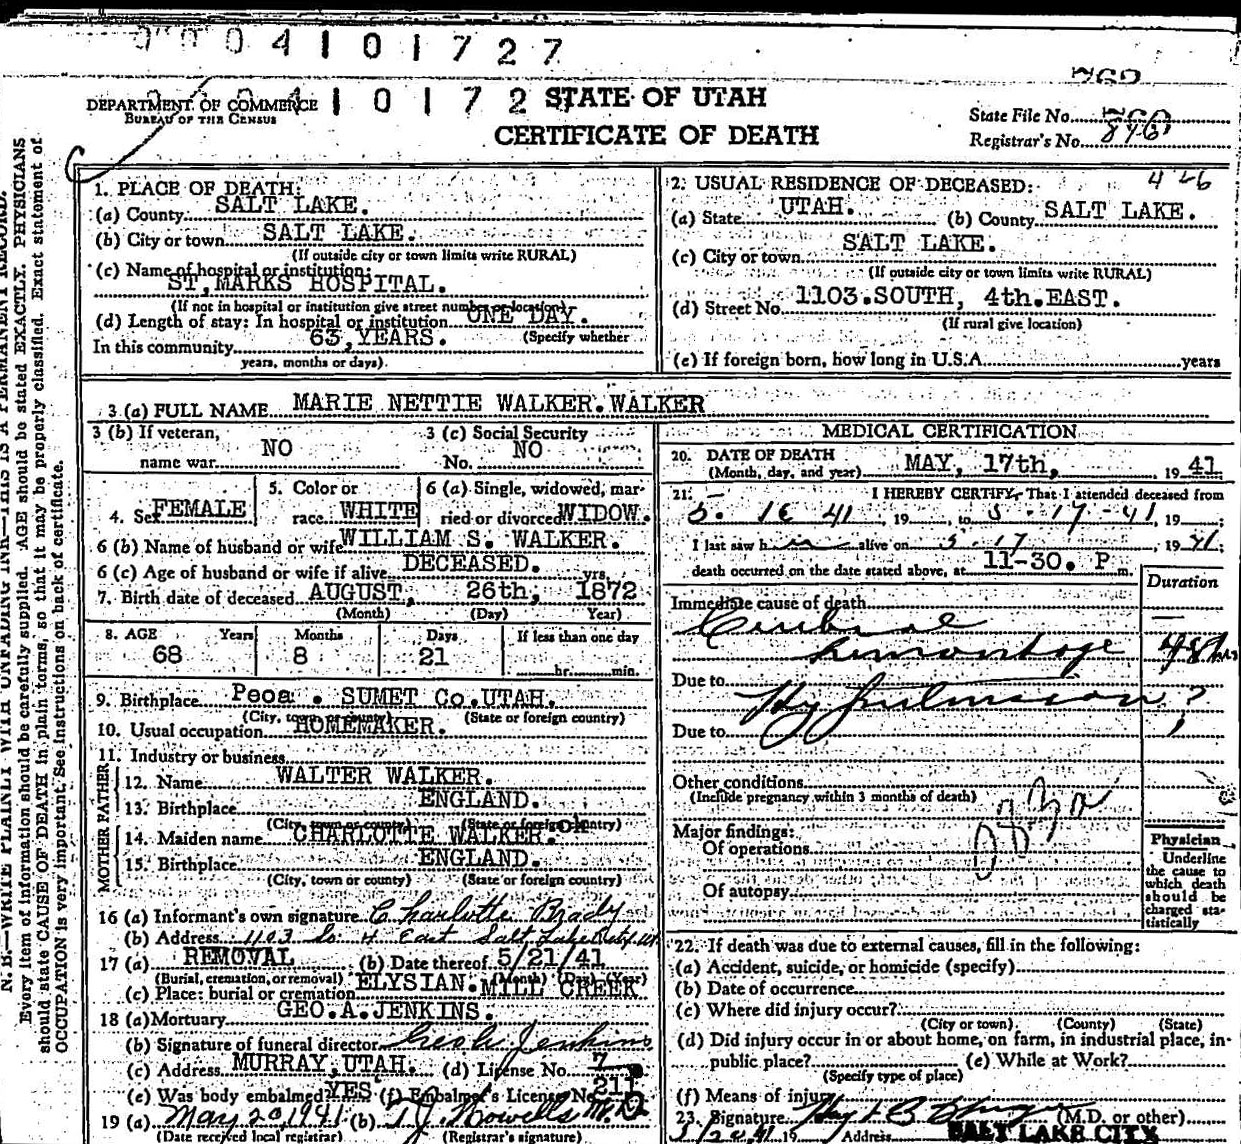 0004101727
DEPARTMENT OF COMMERCE
BUREAU OF THE CENSUS
STATE OF UTAH
CERTIFICATE OF DEATH
State File No.
Registrar's No.
N. B.—WRITE PLAINLY WITH UNFADING INK—THIS IS A PERMANENT RECORD.
Every item of information should be carefully supplied. AGE should be stated EXACTLY. PHYSICIANS
should state CAUSE OF DEATH in plain terms, so that it may be properly classified. Exact statement of
OCCUPATION is very important. See instructions on back of certificate.
1. PLACE OF DEATH:
(a) County SALT LAKE.
(b) City or town SALT LAKE.
(If outside city or town limits write RURAL)
(c) Name of hospital or institution:
ST, MARKS HOSPITAL.
(If not in hospital or institution give street number or location)
(d) Length of stay: In hospital or institution ONE DAY.
(Specify whether
In this community 63, YEARS.
years, months or days)
2. USUAL RESIDENCE OF DECEASED:
(a) State UTAH. (b) County SALT LAKE.
(c) City or town SALT LAKE.
(If outside city or town limits write RURAL)
(d) Street No. 1103.SOUTH, 4th.EAST.
(If rural give location)
(e) If foreign born, how long in U.S.A. years
3 (a) FULL NAME MARIE NETTIE WALKER.WALKER
3 (b) If veteran,
name war NO
3 (c) Social Security
No. NO
4. Sex FEMALE
5. Color or
race WHITE
6 (a) Single, widowed, mar-
ried or divorced WIDOW.
6 (b) Name of husband or wife WILLIAM S. WALKER.
6 (c) Age of husband or wife if alive DECEASED. yrs.
7. Birth date of deceased AUGUST, 26th, 1872
(Month) (Day) Year)
8. AGE Years Months Days If less than one day
68 8 21 hr. min.
9. Birthplace Peoa . SUMET Co.UTAH.
(City, town or county) (State or foreign country)
10. Usual occupation HOMEMAKER.
11. Industry or business
FATHER
12. Name WALTER WALKER.
13. Birthplace ENGLAND.
(City, town or county) (State or foreign country)
MOTHER
14. Maiden name CHARLOTTE WALKER.
15. Birthplace ENGLAND.
(City, town or county) (State or foreign country)
16 (a) Informant's own signature Charlotte Brady
(b) Address 1103 So 4 East Salt Lake City Ut
17 (a) REMOVAL (b) Date thereof 5/21/41
(Burial, cremation, or removal) (Month) (Day) (Year)
(c) Place: burial or cremation ELYSIAN. MILL CREEK
18 (a) Mortuary GEO.A.JENKINS.
(b) Signature of funeral director Geo A Jenkins
(c) Address MURRAY, UTAH. (d) License No. 7
(e) Was body embalmed? YES (f) Embalmer's License No. 211
19 (a) May 20, 1941 (b) M.D.
(Date received local registrar) (Registrar's signature)
MEDICAL CERTIFICATION
20. DATE OF DEATH
(Month, day, and year) MAY, 17th, 1941
21. I HEREBY CERTIFY, That I attended deceased from
5. 16 41, 19 , to 5 - 17 - 41, 19 ;
I last saw h alive on 5 17, 1941;
death occurred on the date stated above, at 11-30. P m.
Duration
Immediate cause of death
Cerebral
hemorrhage 48 hrs
Due to Hypertension ?
Due to
Other conditions
(Include pregnancy within 3 months of death)
Major findings:
Of operations
Of autopsy
Physician
Underline
the cause to
which death
should be
charged sta-
tistically
22. If death was due to external causes, fill in the following:
(a) Accident, suicide, or homicide (specify)
(b) Date of occurrence
(c) Where did injury occur?
(City or town) (County) (State)
(d) Did injury occur in or about home, on farm, in industrial place, in-
public place? (e) While at Work?
(Specify type of place)
(f) Means of injury
23. Signature (M.D. or other)
19 Address SALT LAKE CITY